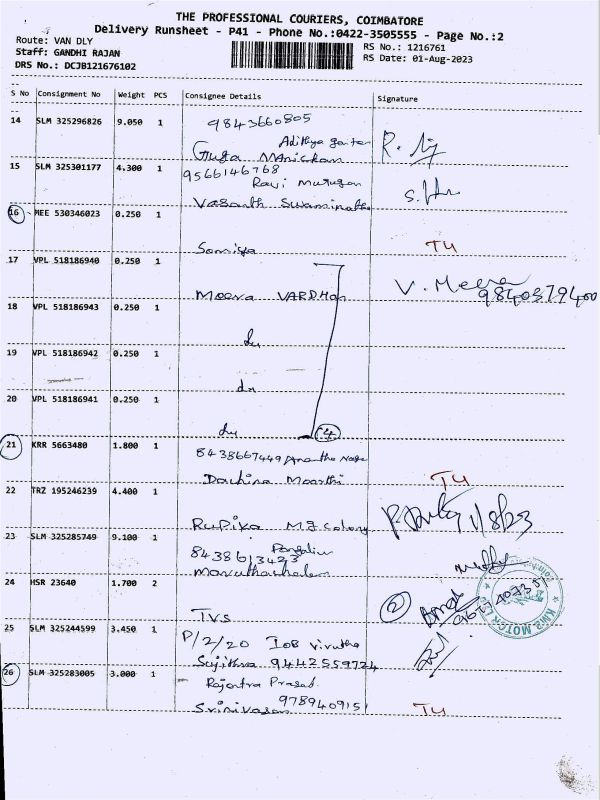 THE PROFESSIONAL COURIERS, COIMBATORE
Delivery Runsheet - P41 - Phone No.:0422-3505555 - Page No.:2
Route: VAN DLY
Staff: GANDHI RAJAN
DRS No.: DCJB121676102
RS No.: 1216761
RS Date: 01-Aug-2023
S No Consignment No Weight PCS Consignee Details Signature
9843660805
14 SLM 325296826 9.050 1
Guga Manickam
15 SLM 325301177 4.300 1
9566146768
Ravi Murugan
Vasanth Swaminatha
16 MEE 530346023 0.250 1
Somiya
17 VPL 518186940 0.250 1
Meera VARDHan V. Meera
9840379400
18 VPL 518186943 0.250 1
do
19 VPL 518186942 0.250 1
do
20 VPL 518186941 0.250 1
do 4
21 KRR 5663480 1.800 1
8438667449
22 TRZ 195246239 4.400 1
1/8/23
Rupika M.G colony
23 SLM 325285749 9.100 1
8438613423
Maruthachalam
24 HSR 23640 1.700 2
2
TVS
25 SLM 325244599 3.450 1
P/2/20 IOB
Sujithra 9442559724
26 SLM 325283005 3.000 1
Rajentra Prasad
9789409151
Srinivasan